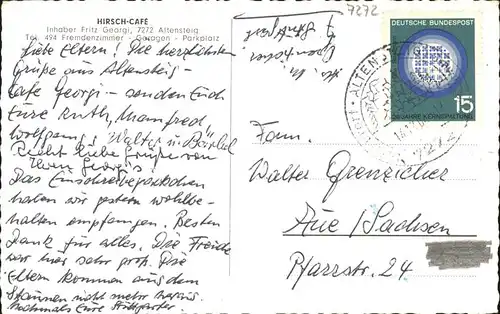 HIRSCH-CAFÉ
Inhaber Fritz Georgi, 7272 Altensteig
Tel. 494 Fremdenzimmer - Garagen - Parkplatz
Liebe Eltern! Die herzlichsten
Grüße aus Altensteig -
Cafe Georgi - senden Euch
Eure Ruth, Manfred,
Wolfgang, Walter u. Bärbel
Recht liebe Grüße von
Georgi's
Das Einschreibepäckchen
haben wir gestern wohlbe-
halten empfangen. Besten
Dank für alles. Die Freude
war hier sehr groß. Die
Eltern kommen aus dem
Staunen nicht mehr heraus.
Nochmals Eure Stuttgarter
7272
DEUTSCHE BUNDESPOST
15
JAHRE KERNSPALTUNG
ALTENSTEIG
7272
Fam.
Walter Grenzicher
Aue / Sachsen
Pfarrstr. 24